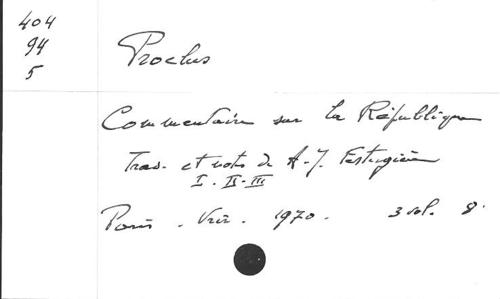 404
94
5
Proclus
Commentaire sur la République
Trad. et notes de A.-J. Festugière
I. II-III
Paris. Vrin. 1970. 3 vol. 8°